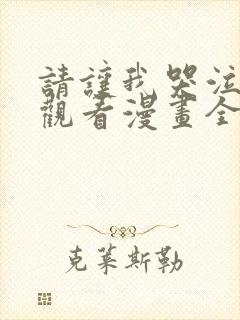 請讓我哭泣
觀看漫畫全
克萊斯勒